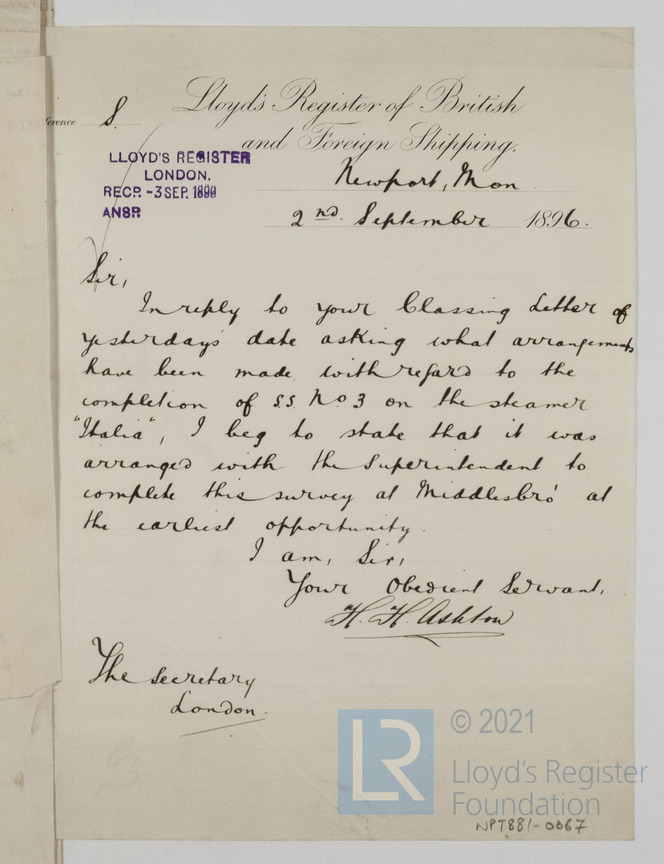 erence S.
Lloyd's Register of British
and Foreign Shipping.
LLOYD'S REGISTER
LONDON.
RECD. -3 SEP. 1896
ANSD.
Newport, Mon
2nd. September 1896.
Sir,
In reply to your Classing Letter of
yesterdays date asking what arrangements
have been made with regard to the
completion of S.S. No 3 on the steamer
"Italia", I beg to state that it was
arranged with the Superintendent to
complete this survey at Middlesbro' at
the earliest opportunity.
I am, Sir,
Your Obedient Servant,
H. H. Ashton
The Secretary
London.
LR
© 2021
Lloyd's Register
Foundation
NPT881-0067